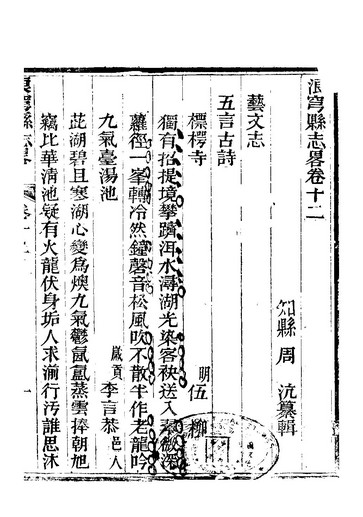 浪穹縣志畧卷十二
知縣周沆纂輯
藝文志
五言古詩
標楞寺
明伍柳
獨有招提境攀躋洱水潯湖光染客袂送入翠微深
蘿徑一峯轉冷然鐘磬音松風吹不散半作老龍吟
九氣臺湯池
歲貢李言恭邑人
茈湖碧且寒湖心變為燠九氣鬱氤氳蒸雲捧朝旭
竊比華清池疑有火龍伏身垢人求湔行汚誰思沐
浪穹縣志畧
卷十二
一